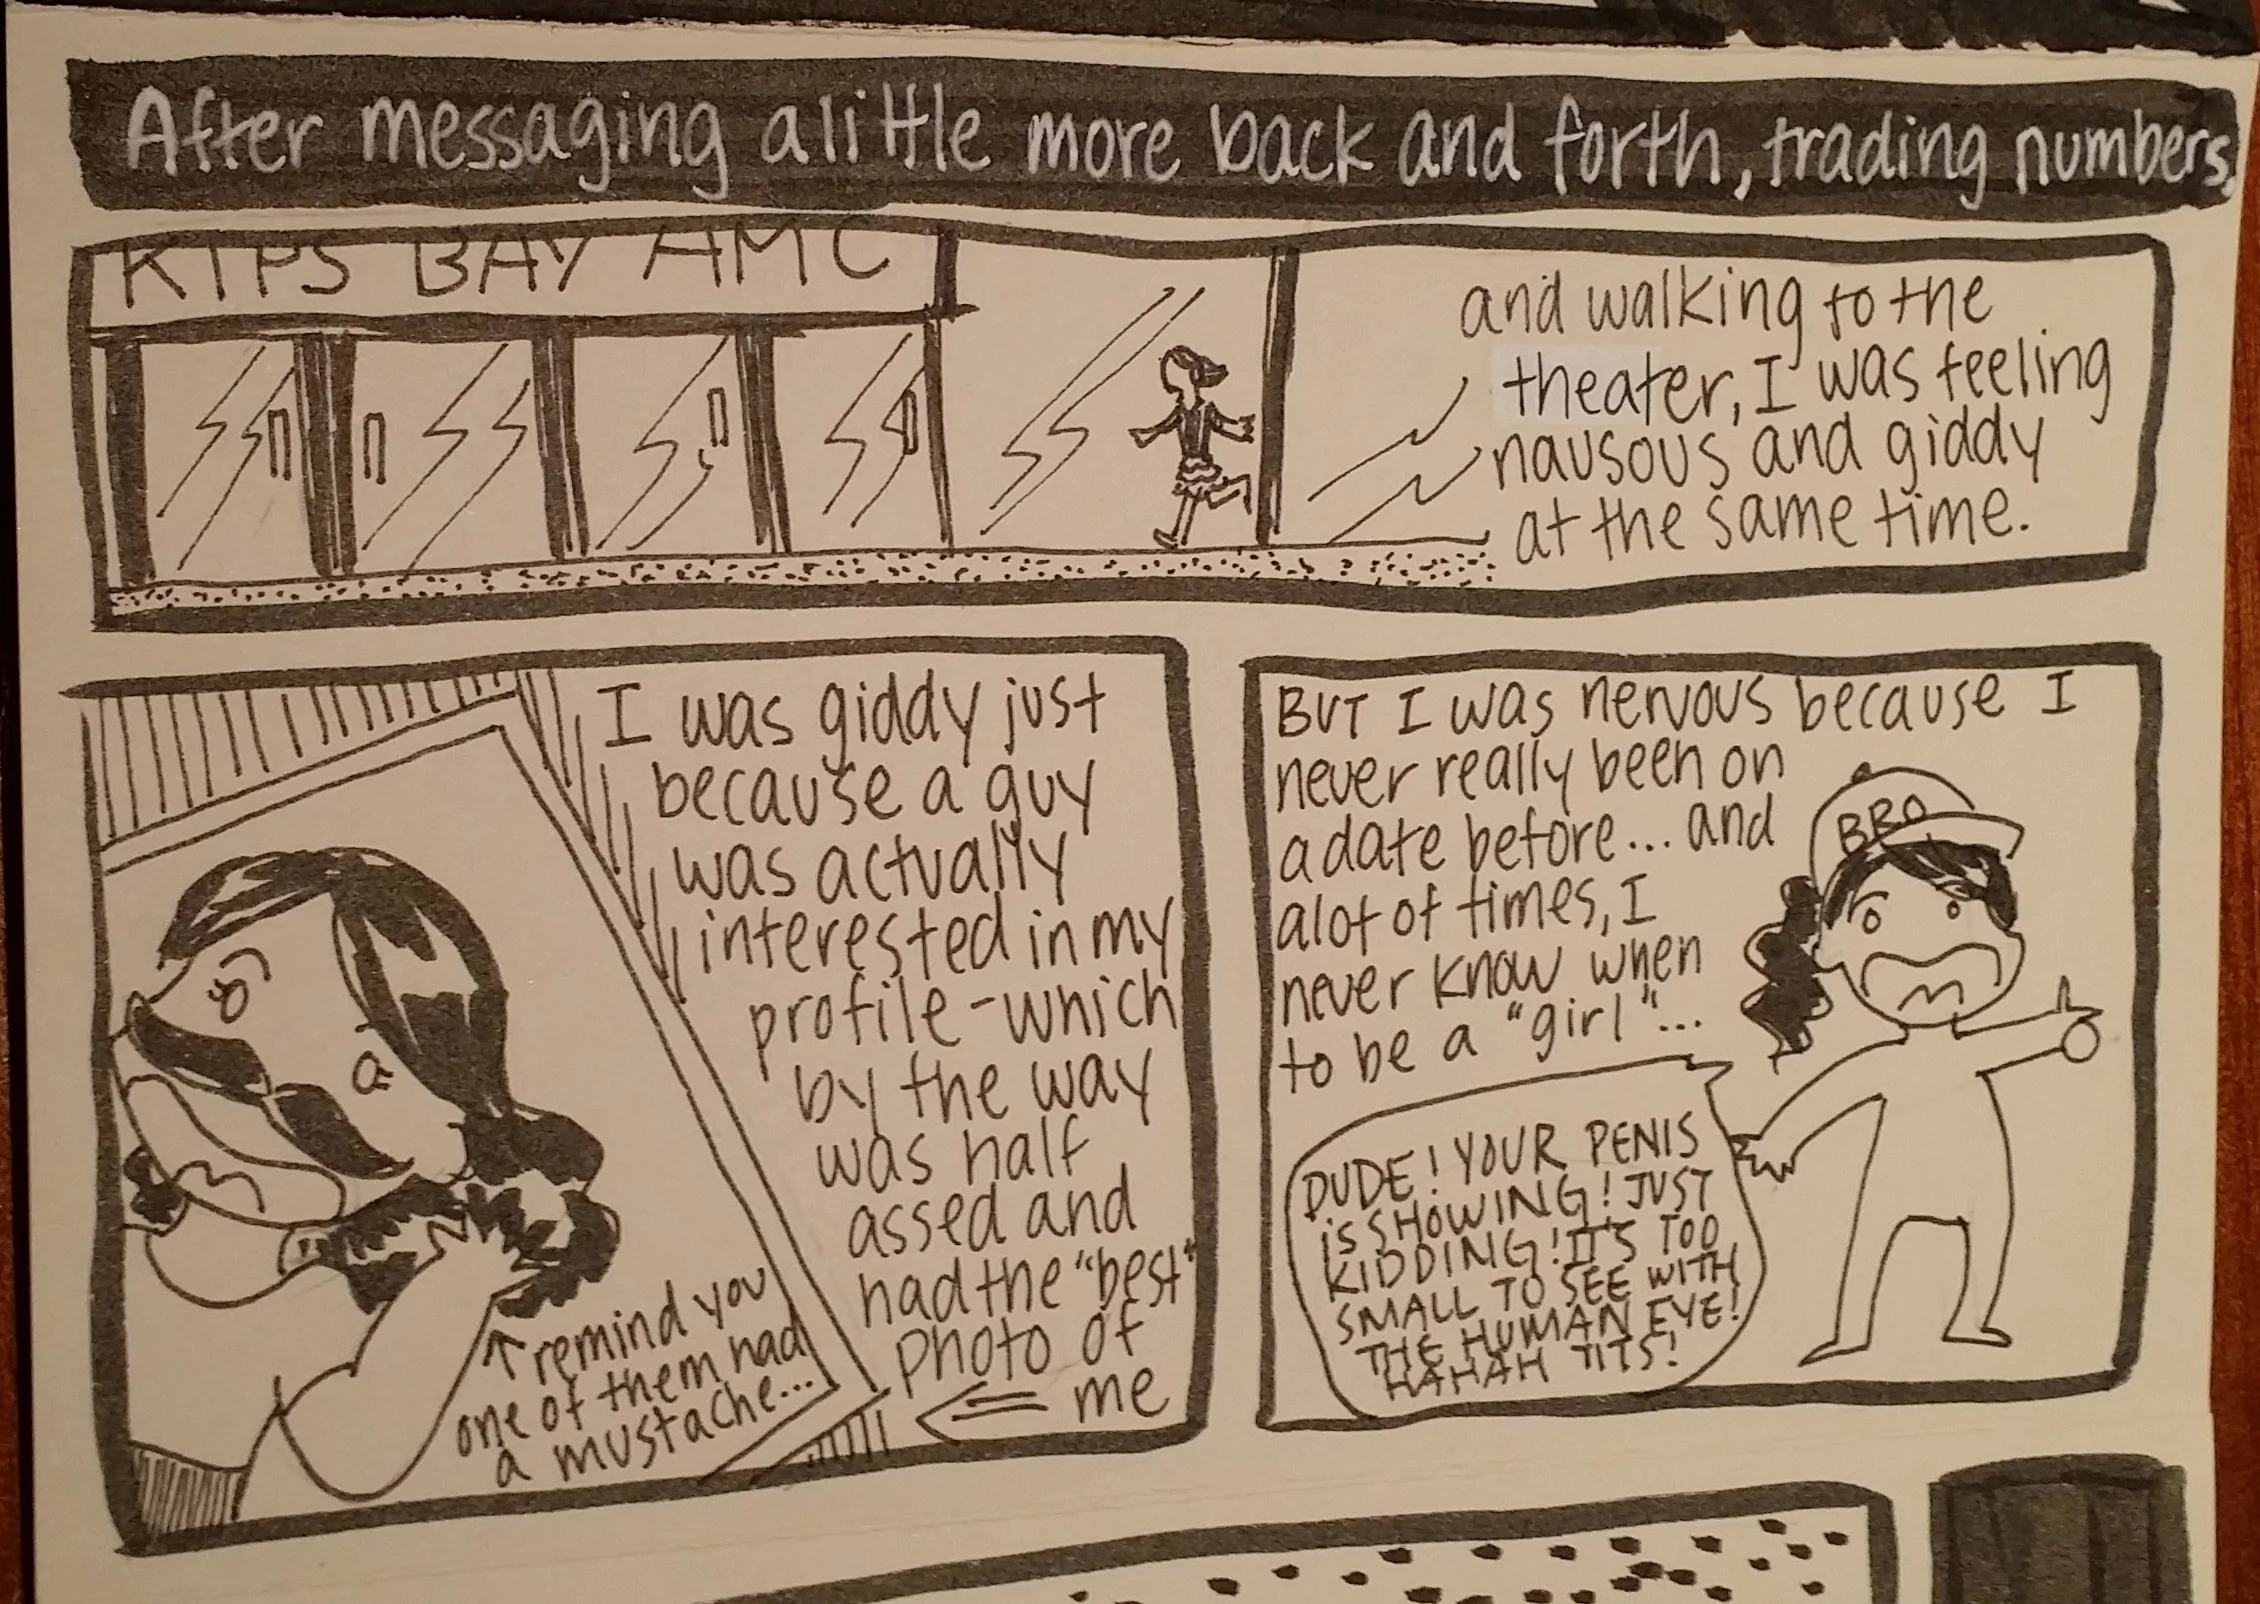 After messaging a little more back and forth, trading numbers,
KIPS BAY AMC
and walking to the
theater, I was feeling
nausous and giddy
at the same time.
I was giddy just
because a guy
was actually
interested in my
profile - which
by the way
was half
assed and
had the "best"
photo of
me
↑ remind you
one of them had
a mustache...
BUT I was nervous because I
never really been on
a date before... and
alot of times, I
never know when
to be a "girl"...
BRO
DUDE! YOUR PENIS
iS SHOWING! JUST
KIDDING! IT'S TOO
SMALL TO SEE WITH
THE HUMAN EYE!
HAHAH TITS!